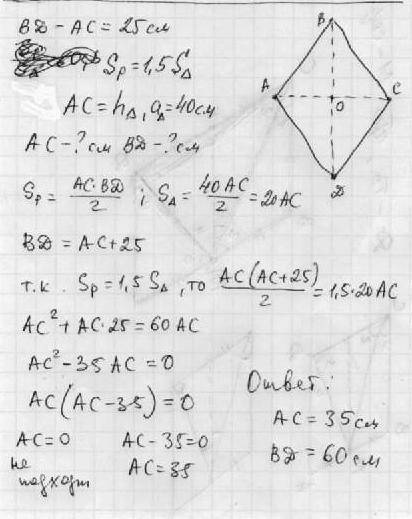 BD - AC = 25 см
Sр = 1,5 S△
AC = h△, a△ = 40 см
AC - ? см BD - ? см
Sр = AC·BD/2 ; S△ = 40 AC/2 = 20 AC
BD = AC + 25
т.к. Sр = 1,5 S△, то AC(AC+25)/2 = 1,5·20 AC
AC² + AC·25 = 60 AC
AC² - 35 AC = 0
AC(AC - 35) = 0
AC = 0 AC - 35 = 0
не подходит AC = 35
Ответ:
AC = 35 см
BD = 60 см
B
A
O
C
D